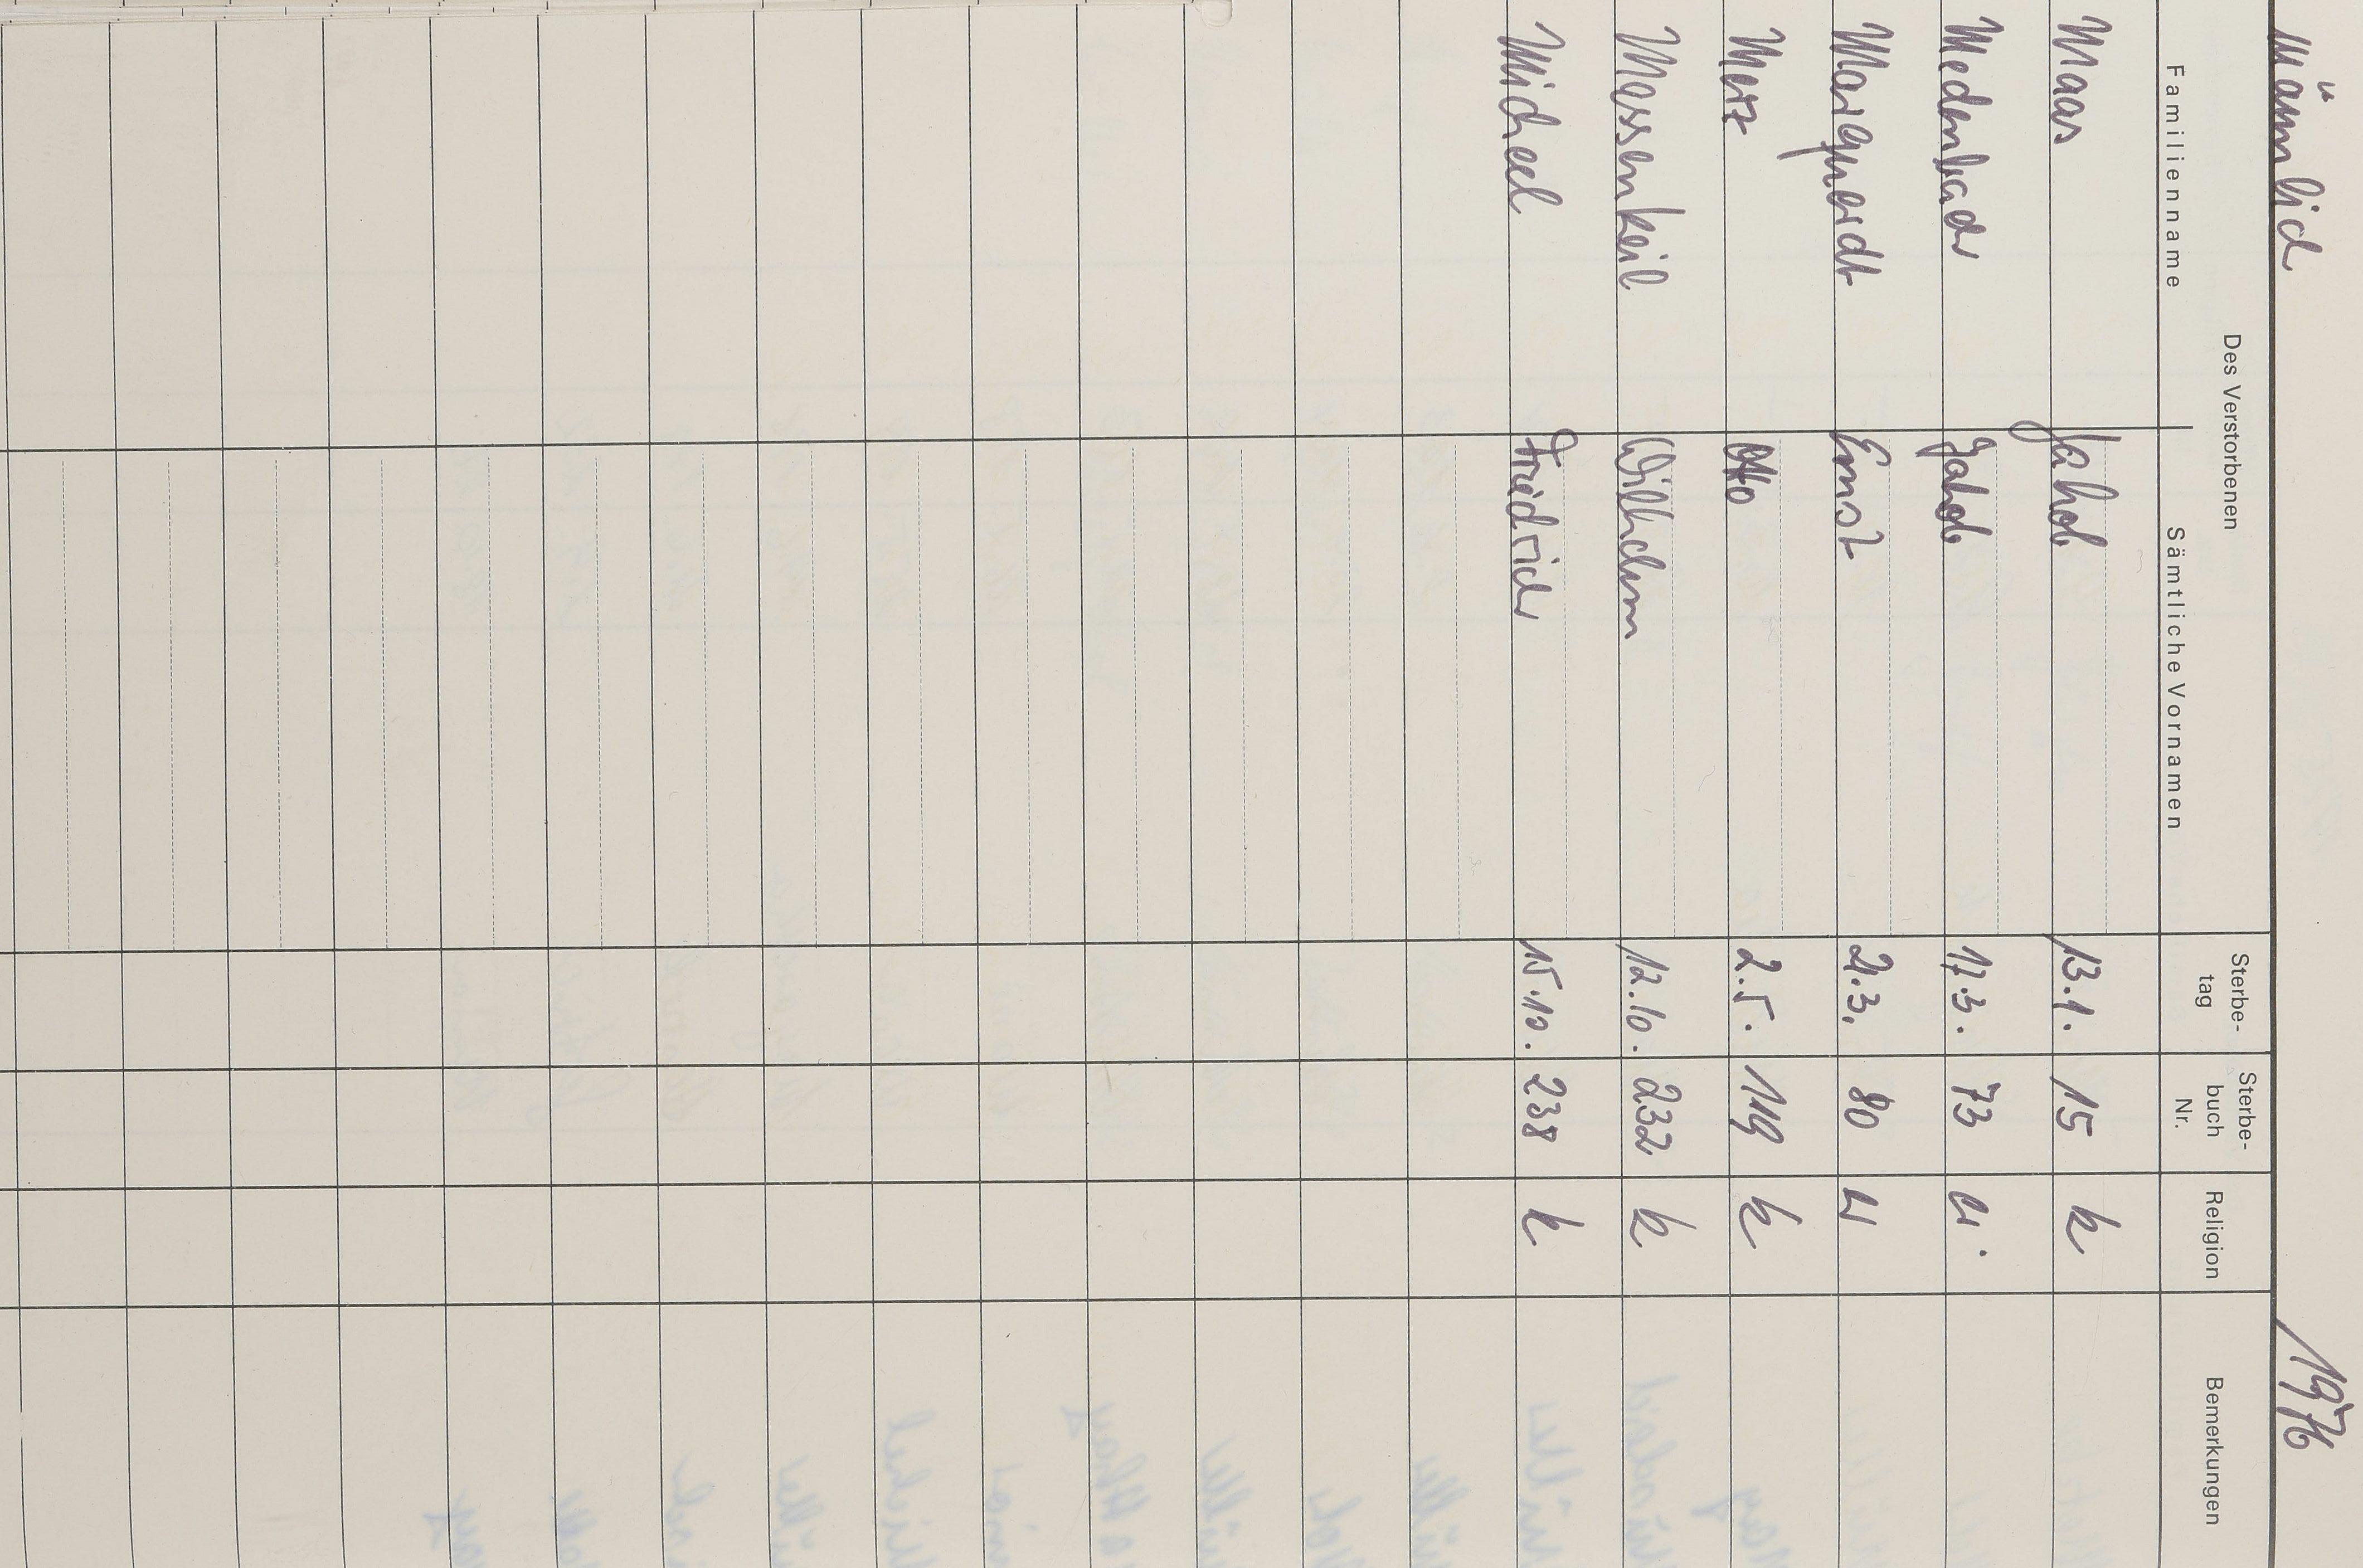 Männlich 1976
Des Verstorbenen
Familienname Sämtliche Vornamen Sterbe-tag Sterbe-buch Nr. Religion Bemerkungen
Maas Jakob 13.1. 15 k
Medenbach Jakob 17.3. 73 ev.
Marquardt Ernst 21.3. 80 ev
Merz Otto 2.5. 119 k
Massenkeil Wilhelm 12.10. 232 k
Michel Friedrich 15.10. 238 k